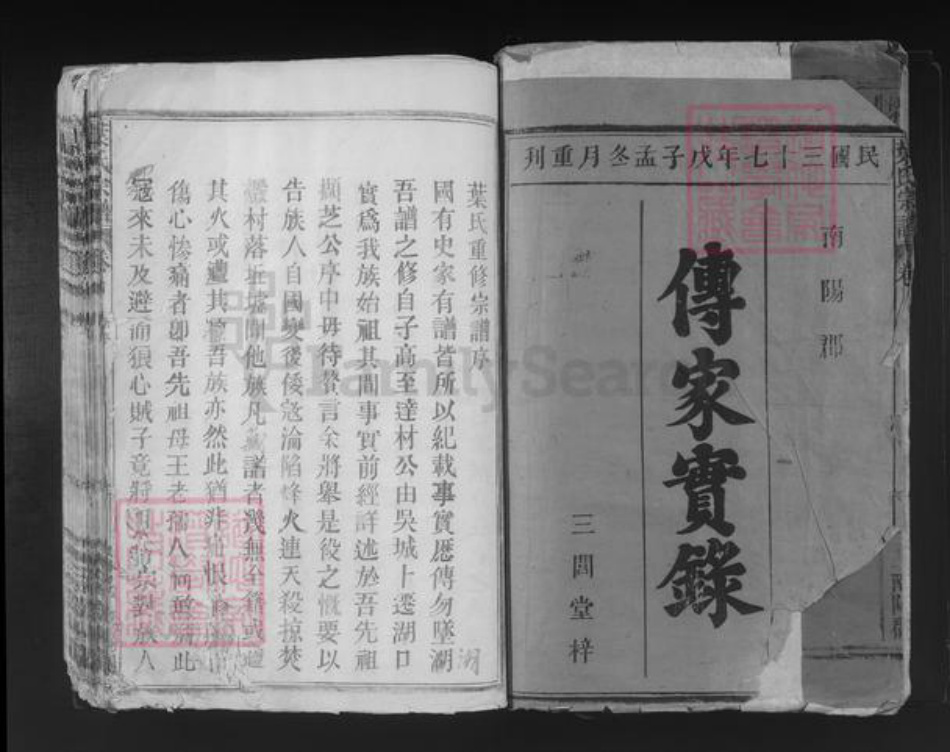 民國三十七年戊子孟冬月重刊
南陽郡
傳家實錄
三閭堂梓
葉氏重修宗譜序
國有史家有譜皆所以紀載事實歷傳勿墜湖
吾譜之修自子高至達材公由吳城上遷湖口
實爲我族始祖其間事實前經詳述於吾先祖
擷芝公序中毋待贅言余將舉是役之慨要以
告族人自國變後倭寇淪陷烽火連天殺掠焚
村落坵墟間他族凡譜者幾無全籍或遭
其火或遭其吾族亦然此猶非痛恨
傷心慘痛者卽吾先祖母王老孺人此
寇來未及避而狼心賊子竟將人
FamilySearch